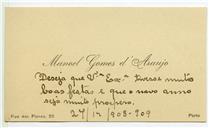 Manoel Gomes d'Araujo
Deseja que V.ª Ex.ª tivesse muito
boas festas e que o novo anno
seja muito prospero.
27/12/908-909
Rua das Flores, 25
Porto